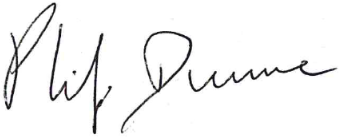 Philip Dunne